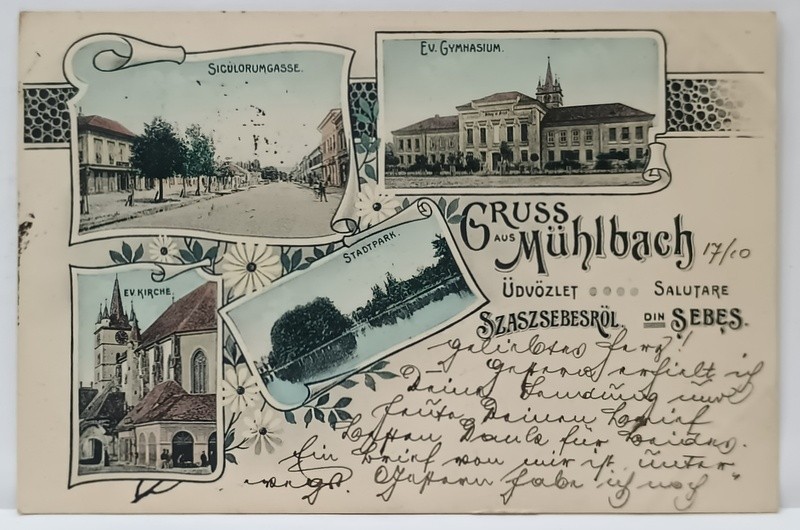 SICULORUMGASSE.
EV. GYMNASIUM.
GRUSS
AUS
Mühlbach
17/10
ÜDVÖZLET SALUTARE
SZASZSEBESRÖL, DIN SEBEŞ.
STADTPARK.
EV. KIRCHE.
geliebtes Herz!
Gestern erhielt ich
Deine Sendung und
heute Deinen Brief
Besten Dank für beides.
Ein Brief von mir ist unter
wegs. Gestern habe ich noch